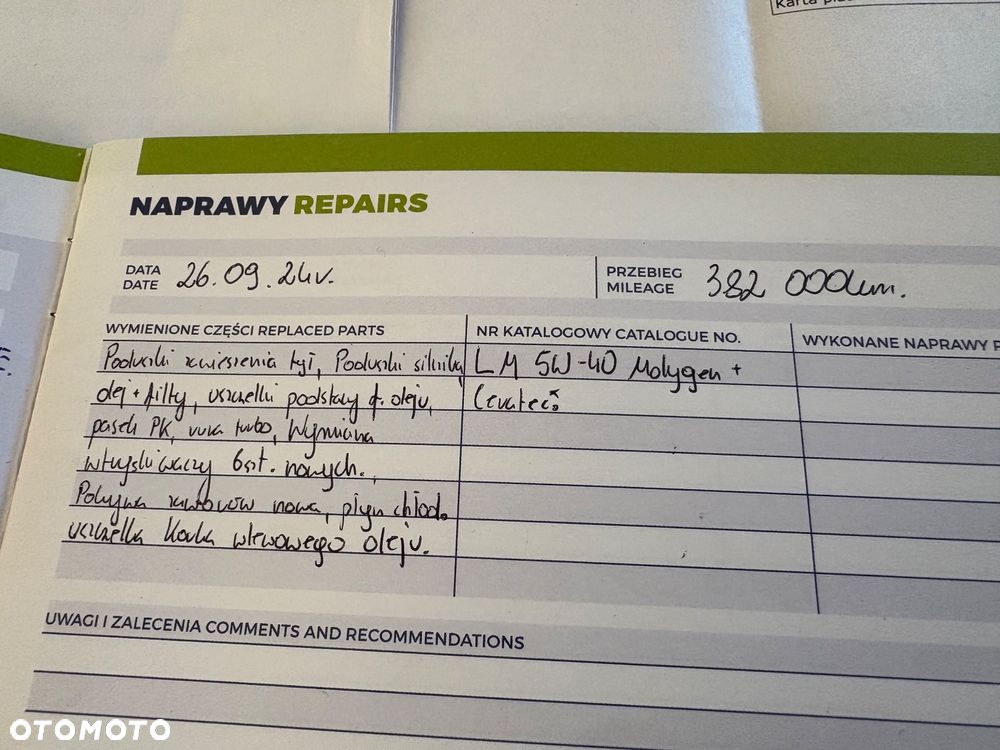 Karta
NAPRAWY REPAIRS
DATA
DATE
26.09.24r.
PRZEBIEG
MILEAGE
382 000km.
WYMIENIONE CZĘŚCI REPLACED PARTS
NR KATALOGOWY CATALOGUE NO.
WYKONANE NAPRAWY
Poduszki zawieszenia tył, Poduszki silnika
LM 5W-40 Molygen +
olej + filtry, uszczelki podstawy f. oleju,
Ceratec
pasek PK, rura turbo, Wymiana
wtryskiwaczy 6szt. nowych.,
Pokrywa zaworów nowa, płyn chłod.
uszczelka korka wlewowego oleju.
UWAGI I ZALECENIA COMMENTS AND RECOMMENDATIONS
OTOMOTO